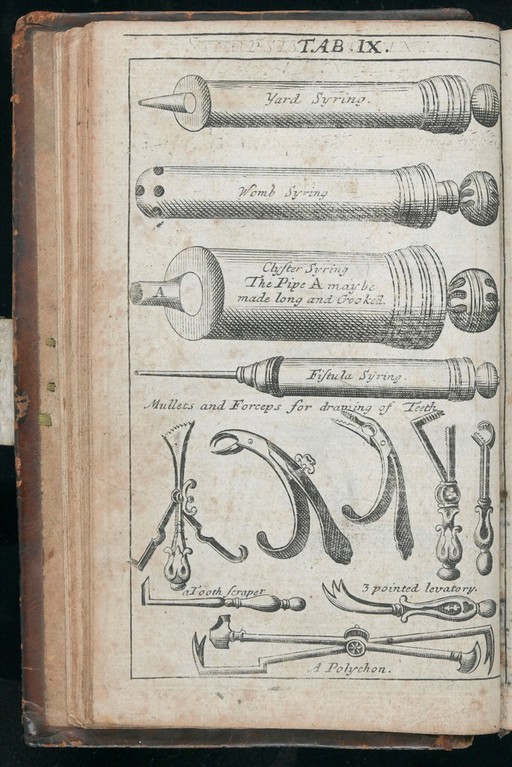 TAB. IX.
Yard Syring.
Womb Syring
Clyster Syring
The Pipe A may be
made long and Crooked.
A
Fistula Syring.
Mullets and Forceps for drawing of Teeth
a Tooth scraper
3 pointed levatory.
A Polychon.